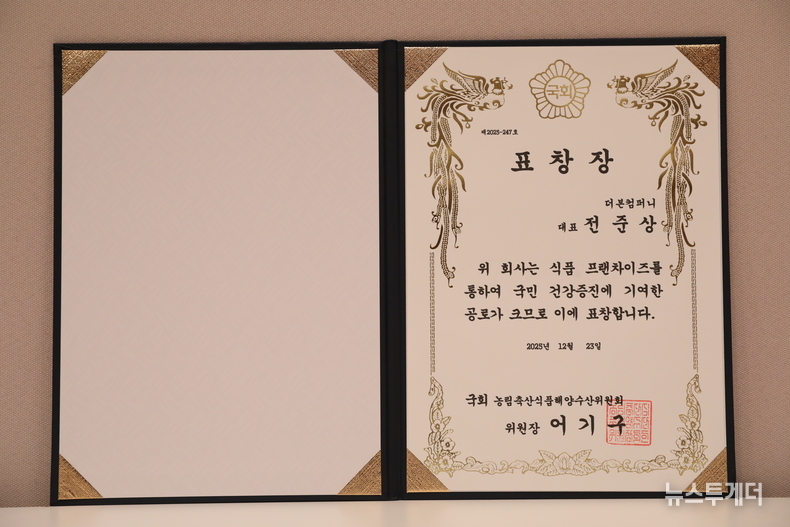 국회
제2025-247호
표창장
더본컴퍼니
대표 전준상
위 회사는 식품 프랜차이즈를
통하여 국민 건강증진에 기여한
공로가 크므로 이에 표창합니다.
2025년 12월 23일
국회 농림축산식품해양수산위원회
위원장 어기구
뉴스투게더